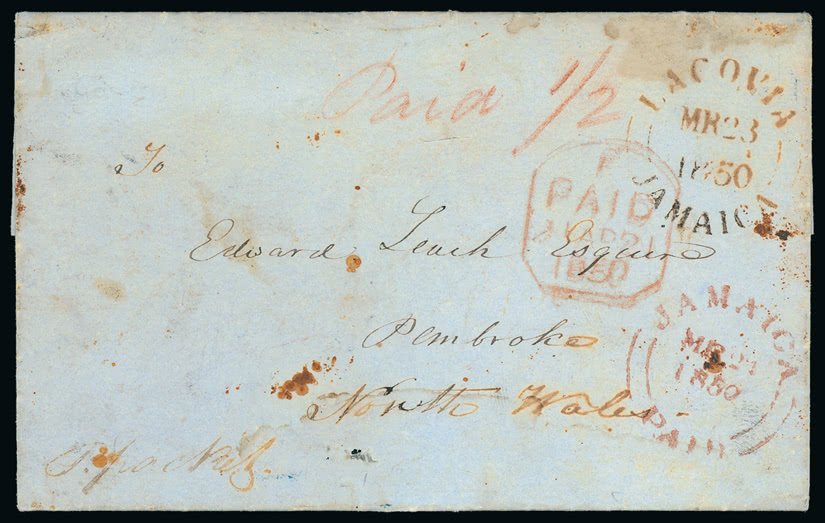 Paid 1/2
LACOVIA
MR 23
1850
JAMAICA
To
PAID
1850
Edward Leach Esquire
Pembroke
North Wales
JAMAICA
MR
1850
PAID